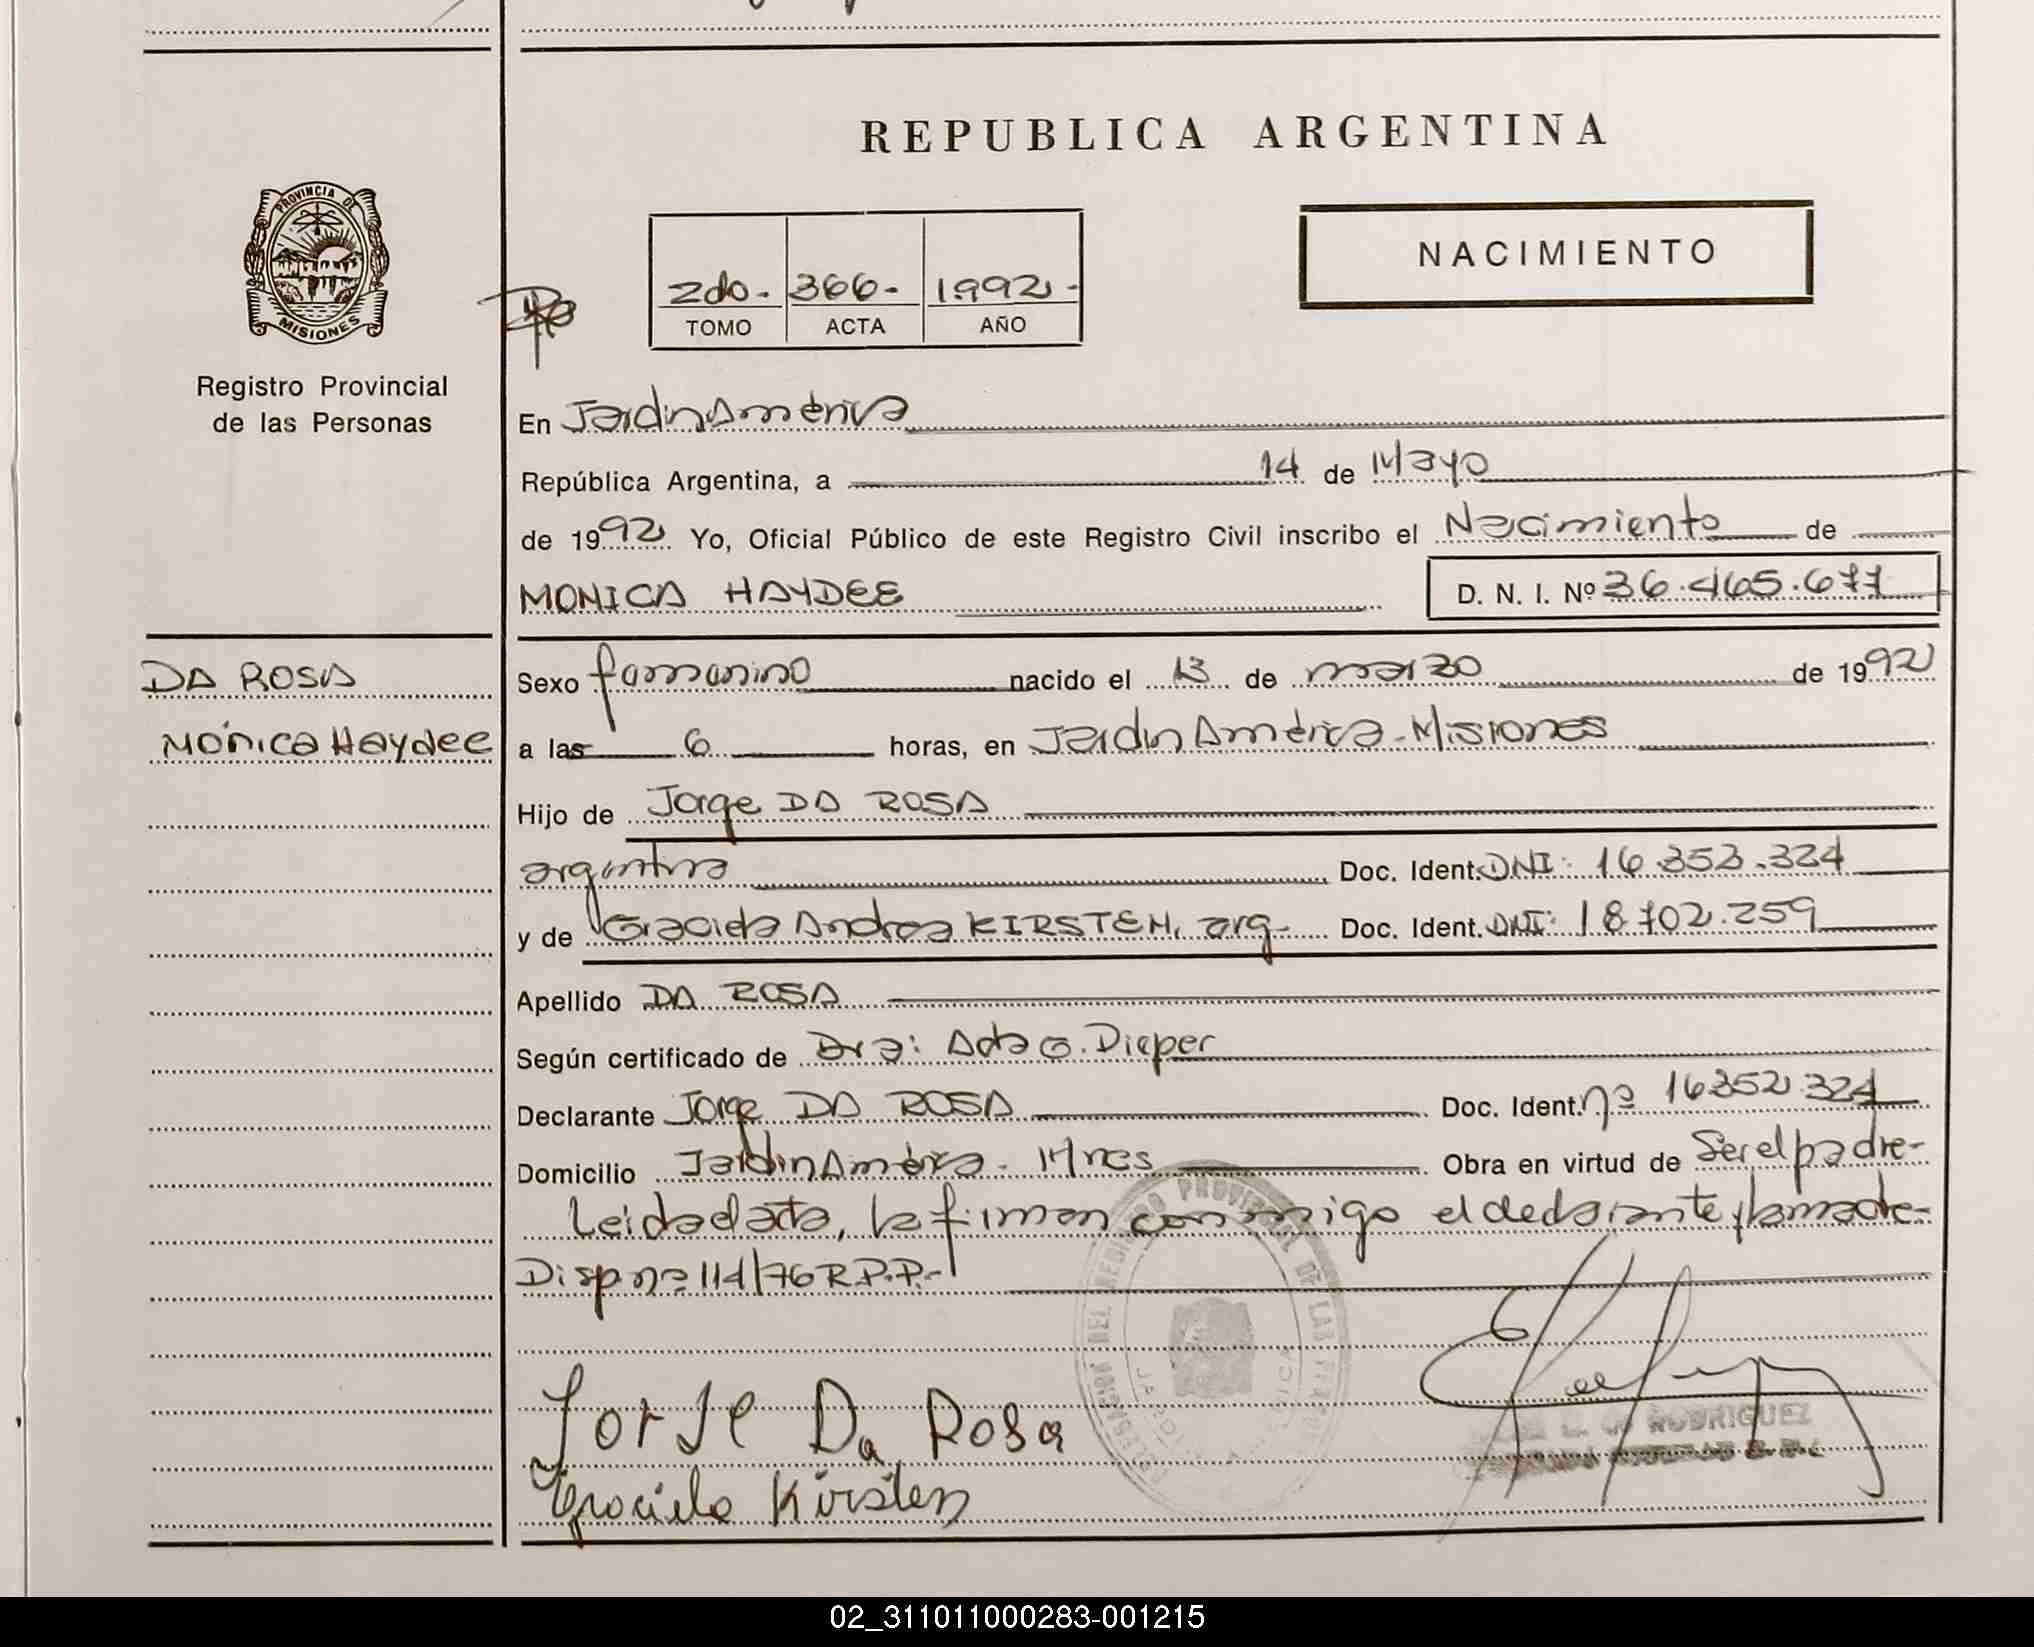 REPUBLICA ARGENTINA
PROVINCIA DE
MISIONES
Registro Provincial
de las Personas
2do. 366. 1992.
TOMO ACTA AÑO
NACIMIENTO
En Jardin América
República Argentina, a 14 de Mayo
de 1992 Yo, Oficial Público de este Registro Civil inscribo el Nacimiento de
MONICA HAYDEE D. N. I. Nº 36.465.677
DA ROSA
Mónica Haydee
Sexo femenino nacido el 13 de marzo de 1992
a las 6 horas, en Jardin América - Misiones
Hijo de Jorge DA ROSA
argentino Doc. Ident. DNI: 16.352.324
y de Graciela Andrea KIRSTEN, arg. Doc. Ident. DNI: 18.702.259
Apellido DA ROSA
Según certificado de Dra: Ada G. Dieper
Declarante Jorge DA ROSA Doc. Ident. nº 16352.324
Domicilio Jardin América - Mnes Obra en virtud de Ser el padre-
Leida el acta, la firman conmigo el declarante y la madre-
Disp nº 114/76 R.P.P.-
DELEGACION DEL REGISTRO PROVINCIAL DE LAS PERSONAS
Jorje Da Rosa
RODRIGUEZ
Graciela Kirsten
02_311011000283-001215